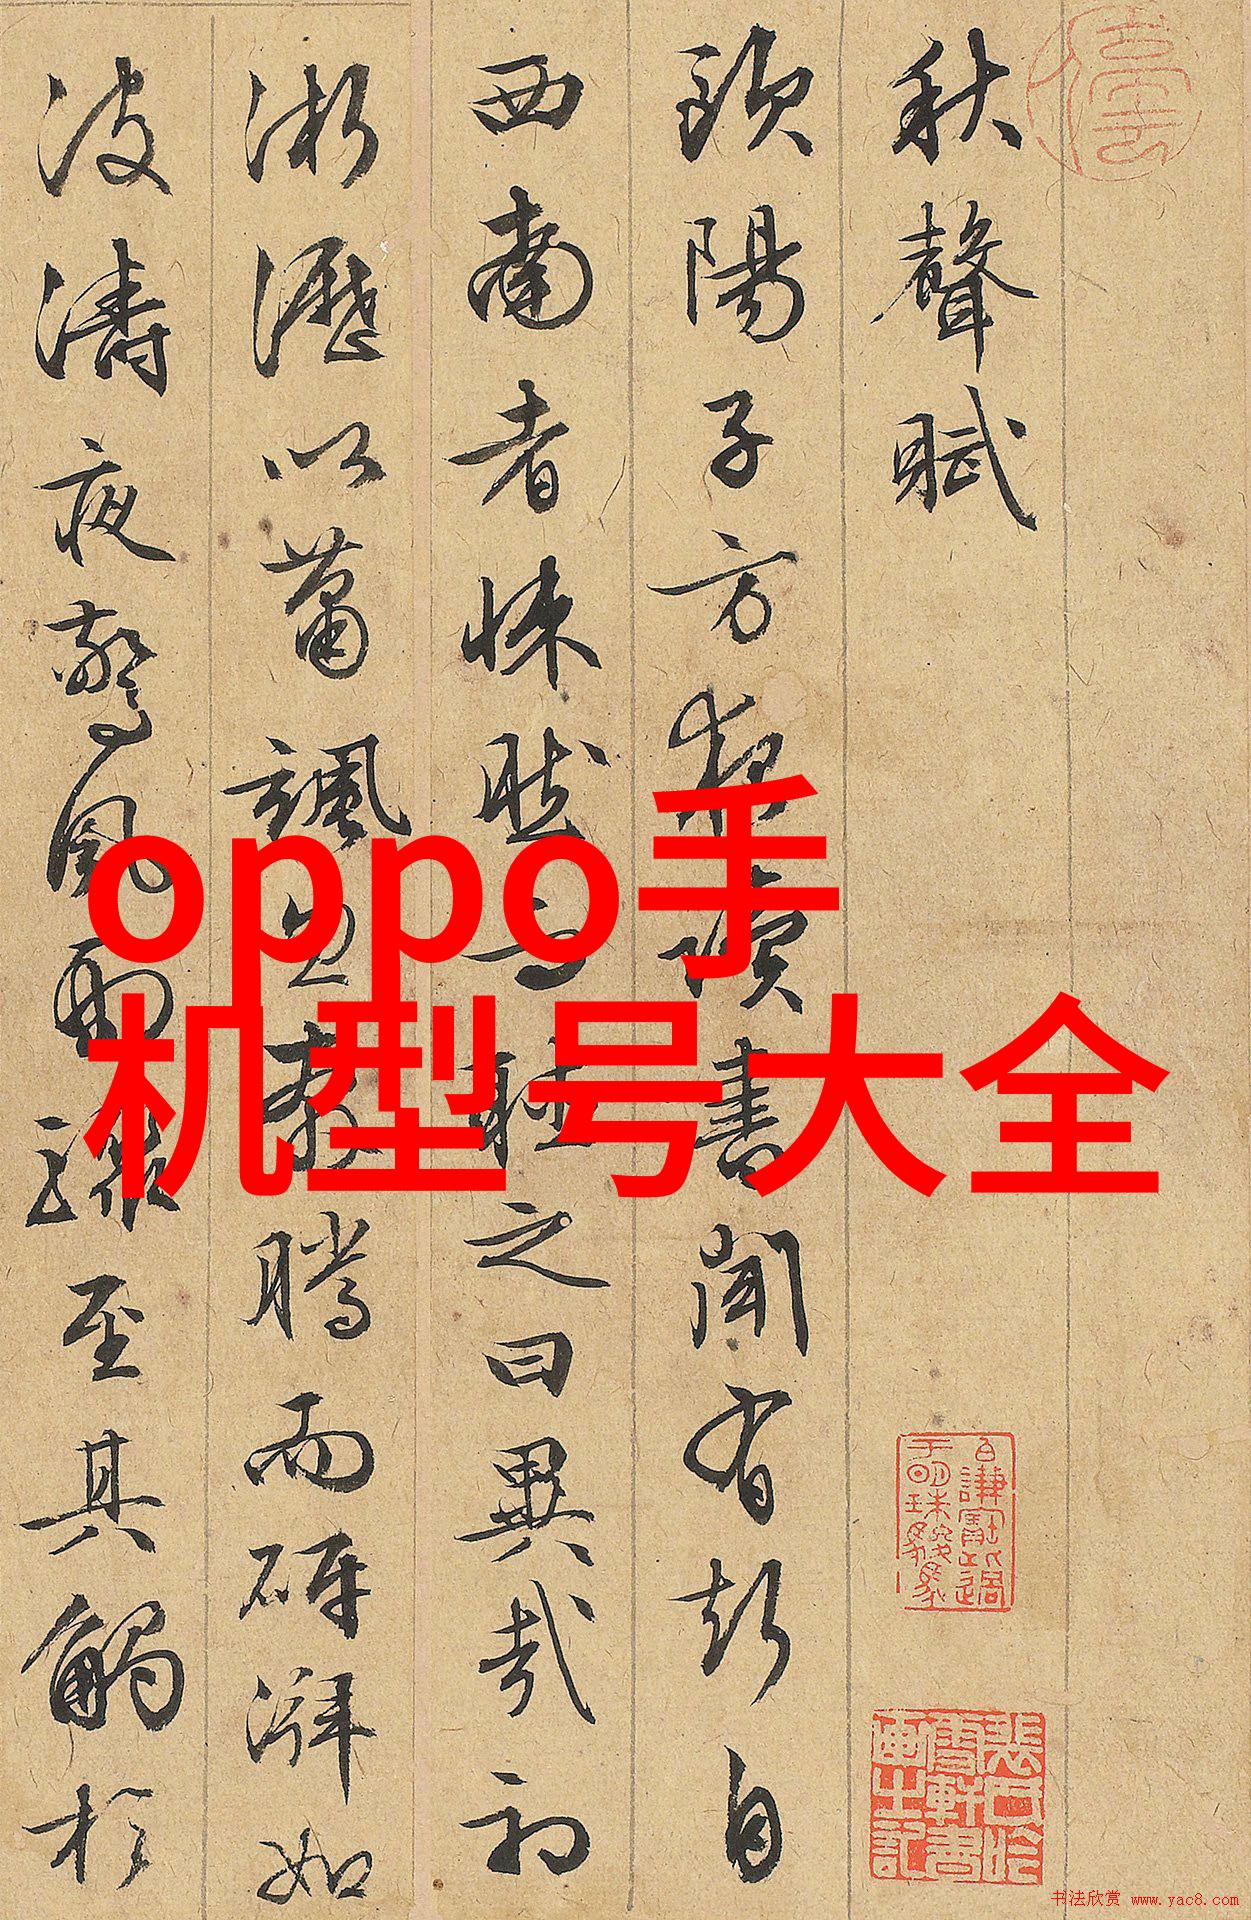 秋聲賦
歐陽子方夜讀書聞有聲自
西南者悚然而聽之曰異哉初
淅瀝以蕭颯忽奔騰而砰湃如
波濤夜驚風雨驟至其觸於
oppo手
机型号大全
书法欣赏 www.yac8.com